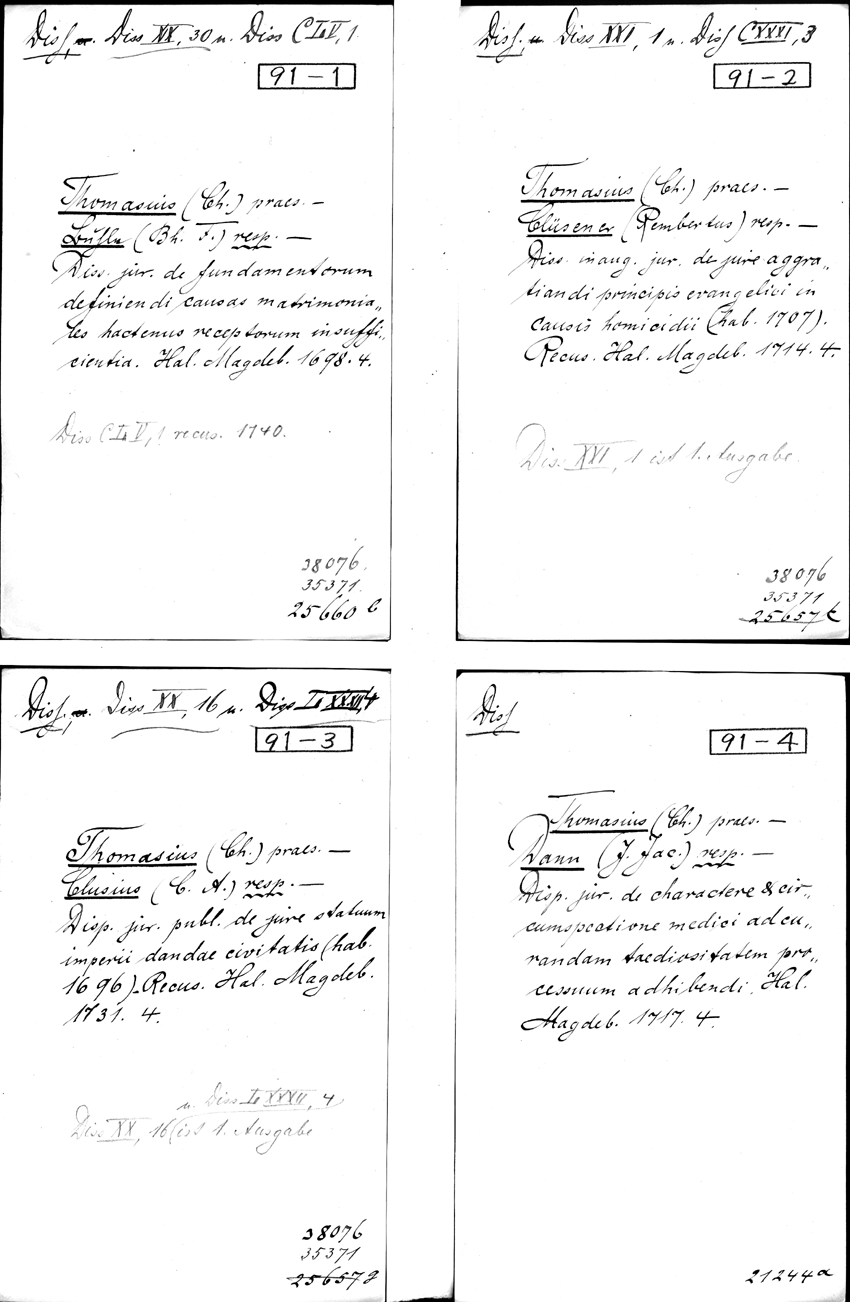 Diss. u. Diss XX, 30 u. Diss C L V, 1
91-1
Thomasius (Ch.) praes. —
(Bh. F.) resp. —
Diss. jur. de fundamentorum
definiendi causas matrimonia„
les hactenus receptorum insuffi„
cientia. Hal. Magdeb. 1698. 4.
Diss C L V, 1 recus. 1740.
38076.
35371.
25660 b
Diss. u. Diss XXI, 1 u. Diss CXXXI, 3
91-2
Thomasius (Ch.) praes. —
Clüsener (Rembertus) resp. —
Diss. inaug. jur. de jure aggra„
tiandi principis evangelici in
causis homicidii (hab. 1707).
Recus. Hal. Magdeb. 1714. 4.
Diss. XXI, 1 ist 1. Ausgabe.
38076
35371
25657 k
Diss. u. Diss XX, 16 u. Diss L XXXII, 4
91-3
Thomasius (Ch.) praes. —
Clusius (C. A.) resp. —
Disp. jur. publ. de jure statuum
imperii dandae civitatis (hab.
1696). Recus. Hal. Magdeb.
1731. 4.
u. Diss L XXXII, 4
Diss XX, 16 (ist 1. Ausgabe
38076
35371
25657 g
Diss
91-4
Thomasius (Ch.) praes. —
Dann (J. Jac.) resp. —
Disp. jur. de charactere & cir„
cumspectione medici ad cu„
randam taediositatem pro„
cessuum adhibendi. Hal.
Magdeb. 1717. 4.
21244 a